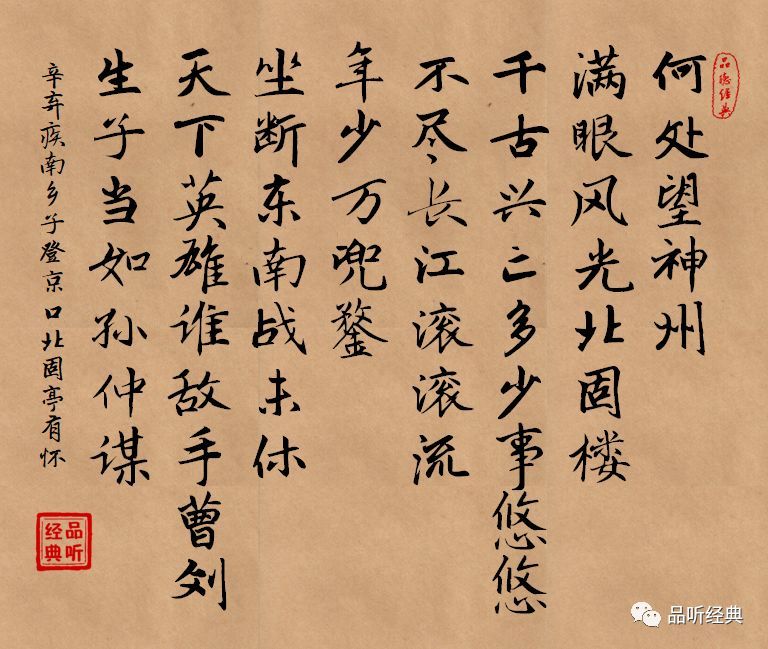 品听经典
何处望神州
满眼风光北固楼
千古兴亡多少事悠悠
不尽长江滚滚流
年少万兜鍪
坐断东南战未休
天下英雄谁敌手曹刘
生子当如孙仲谋
辛弃疾南乡子登京口北固亭有怀
品听经典
品听经典